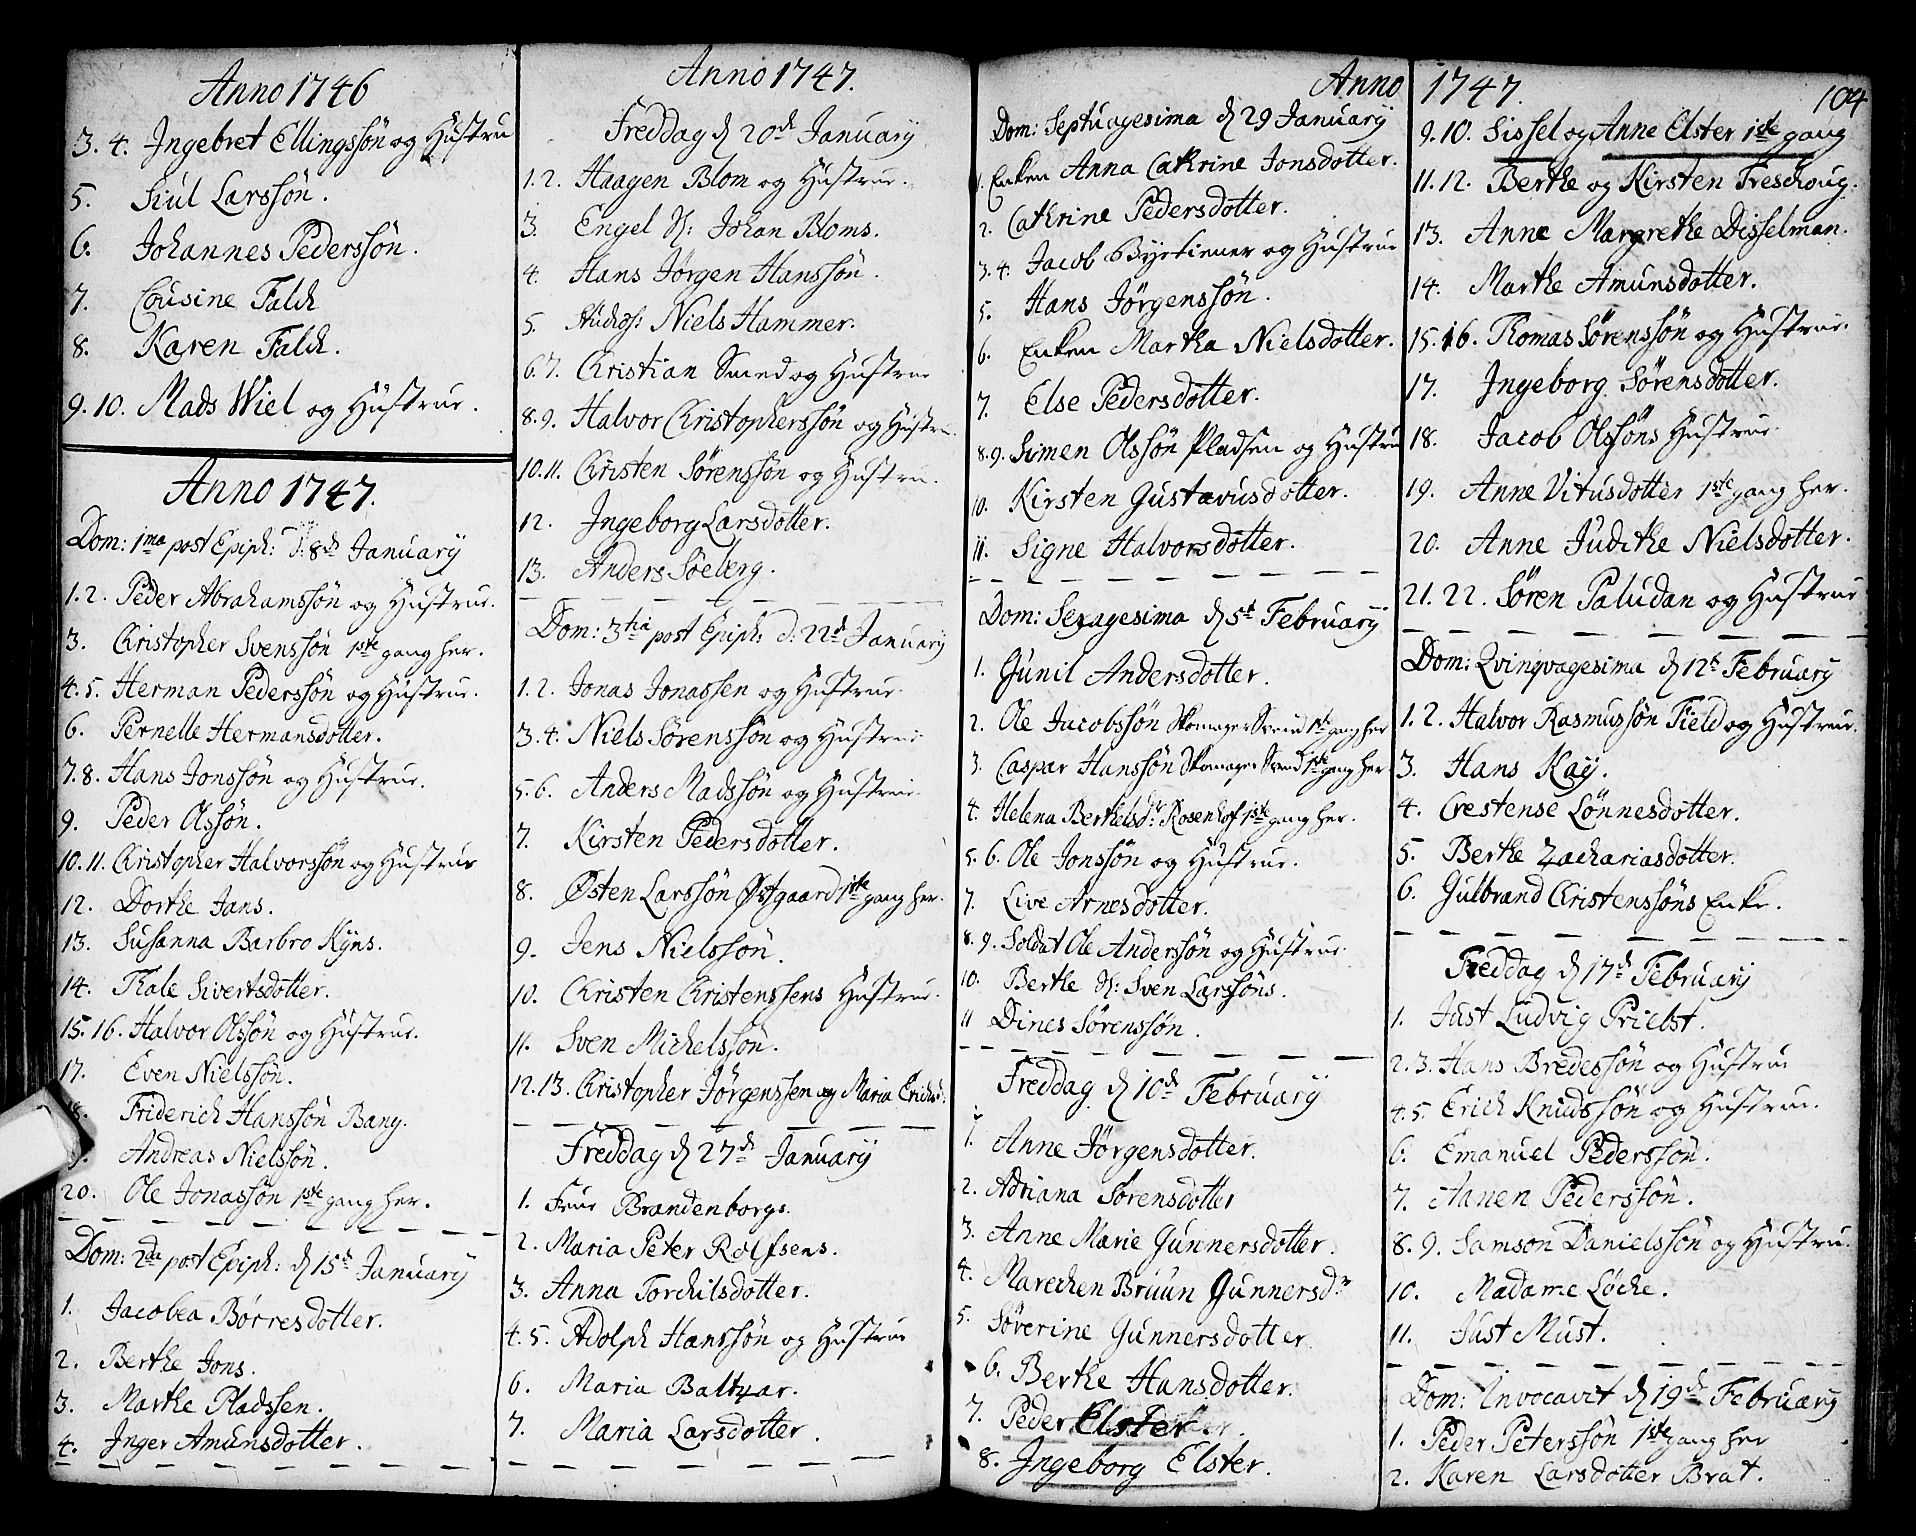 Anno 1746
3. 4. Ingebret Ellingssön og Hustru
5. Siul Larssön.
6. Johannes Pederssön.
7. Cousine Falch
8. Karen Falch.
9. 10. Mads Wiel og Hustrue.
Anno 1747.
Dom: 1ma post Epiph: d. 8de January
1. 2. Peder Abrahamssön og Hustrue.
3. Christopher Svenssön 1ste gang her.
4. 5. Herman Pederssön og Hustrue.
6. Pernelle Hermansdotter.
7. 8. Hans Jonssön og Hustrue.
9. Peder Olssön.
10. 11. Christopher Halvorssön og Hustrue
12. Dorthe Jans.
13. Susanna Barbro Kyns.
14. Thale Sivertsdotter.
15. 16. Halvor Olssön og Hustrue.
17. Even Nielssön.
18. Friderich Hanssön Bang.
9. Andreas Nielssön.
20. Ole Jonassön 1ste gang her.
Dom: 2da post Epiph: d 15de January
1. Jacobea Börresdotter.
2. Berthe Jons.
3. Marthe Pladssen.
4. Inger Amunsdotter.
Anno 1747.
Freddag d 20de January
1. 2. Haagen Blom og Hustrue.
3. Engel S: Johan Bloms.
4. Hans Jörgen Hanssön.
5. Niels Hammer.
6. 7. Christian Smed og Hustrue
8. 9. Halvor Christopherssön og Hustru.
10. 11. Christen Sörenssön og Hustru.
12. Ingeborg Larsdotter.
13. Anders Soelerg.
Dom: 3tia post Epiph: d: 22de January
1. 2. Jonas Jonassen og Hustrue.
3. 4. Niels Sörenssön og Hustrue
5. 6. Anders Madssön og Hustrue.
7. Kirsten Pedersdotter.
8. Østen Larssön Østgaard 1ste gang her.
9. Jens Nielssön.
10. Christen Christenssens Hustrue.
11. Sven Michelssön.
12. 13. Christopher Jörgenssen og Maria Erichsd:
Freddag d 27de January
1. Frue Brandenborgs.
2. Maria Peter Rolfsens.
3. Anna Torchilsdotter.
4. 5. Adolph Hanssön og Hustrue
6. Maria Baltzar.
7. Maria Larsdotter.
Anno 1747.
104
Dom: Septuagesima d 29 January
1. Enken Anna Cathrine Jonsdotter.
2. Cathrine Pedersdotter.
3. 4. Jacob Byrkiener og Hustrue
5. Hans Jörgenssön.
6. Enken Martha Nielsdotter.
7. Else Pedersdotter.
8. 9. Simen Olssön Pladsen og Hustru
10. Kirsten Gustavusdotter.
11. Signe Halvorsdotter.
Dom: Sexagesima d 5te February
1. Gunil Andersdotter.
2. Ole Jacobssön Skomager Svend 1ste gang her
3. Caspar Hanssön Skomager Svend 1ste gang her.
4. Helena Berthelsdr: Rosenhof 1ste gang her.
5. 6. Ole Jonssön og Hustrue.
7. Live Arnesdotter.
8. 9. Soldat Ole Anderssön og Hustrue.
10. Berthe S: Sven Larssöns.
11 Dines Sörenssön.
Freddag d 10de February
1. Anne Jörgensdotter.
2. Adriana Sörensdotter
3. Anne Marie Gunnersdotter.
4. Marechen Bruun Gunnersdr
5. Söverine Gunnersdotter
6. Berthe Hansdotter.
7. Peder Elster
8. Ingeborg Elster.
9. 10. Sissel og Anne Elster 1ste gang
11. 12. Berthe og Kirsten Treschoug.
13. Anne Margrethe Disselman.
14. Marthe Amunsdotter.
15. 16. Thomas Sörenssön og Hustrue.
17. Ingeborg Sörensdotter.
18. Jacob Olssöns Hustrue
19. Anne Vitusdotter 1ste gang her.
20. Anne Judithe Nielsdotter.
21. 22. Sören Paludan og Hustrue
Dom: Qvinqvagesima d 12te February
1. 2. Halvor Rasmussön Field og Hustrue.
3. Hans Kay.
4. Crestense Lönnesdotter.
5. Berthe Zachariasdotter.
6. Gulbrand Christenssöns Enke.
Freddag d 17de February
1. Just Ludvig Priebst.
2. 3. Hans Bredessön og Hustrue
4. 5. Erich Knudssön og Hustrue.
6. Emanuel Pederssön.
7. Aanen Pederssön.
8. 9. Samson Danielssön og Hustru.
10. Madame Löche.
11. Just Must.
Dom: Invocavit d 19de February
1. Peder Peterssön 1ste gang her
2. Karen Larsdotter Brat.